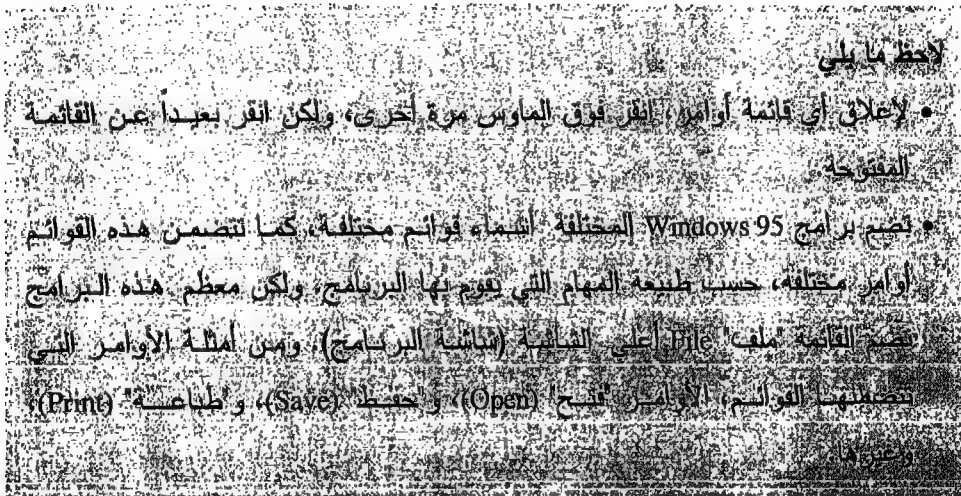 لاحظ ما يلي
• لإغلاق أي قائمة أوامر، انقر فوق الماوس مرة أخرى، ولكن انقر بعيداً عن القائمة
المفتوحة
• تضم برامج Windows 95 المختلفة أسماء قوائم مختلفة، كما تتضمن هذه القوائم
أوامر مختلفة، حسب طبيعة المهام التي يقوم بها البرنامج، ولكن معظم هذه البرامج
تضم القائمة "ملف" File أعلى الشاشة (شاشة البرنامج)، ومن أمثلة الأوامر التي
تتضمنها القوائم، الأوامر "فتح" (Open)، و"حفظ" (Save)، و"طباعة" (Print)،
وغيرها